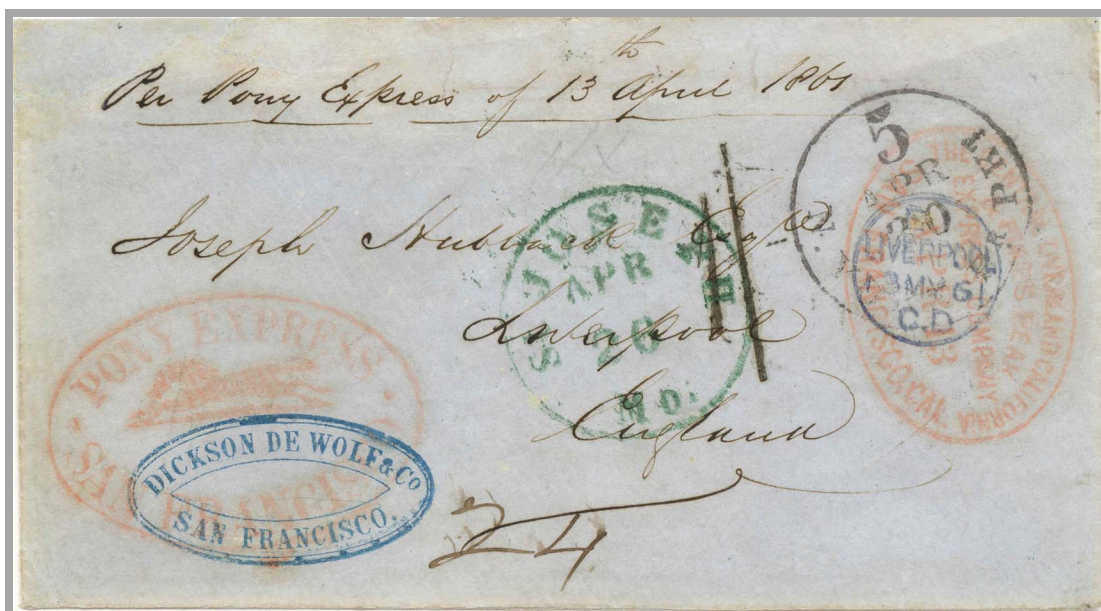 Per Pony Express of 13th April 1861
Joseph Hubback Esqre
Liverpool
England
24
PONY EXPRESS
SAN FRANCISCO
DICKSON DE WOLF & Co
SAN FRANCISCO.
ST JOSEPH
APR
20
MO.
5
N. YORK PKT
APR
30
LIVERPOOL
13 MY 61
C.D
THE CENTRAL OVERLAND CALIFORNIA
SAN FRANCISCO, CAL.